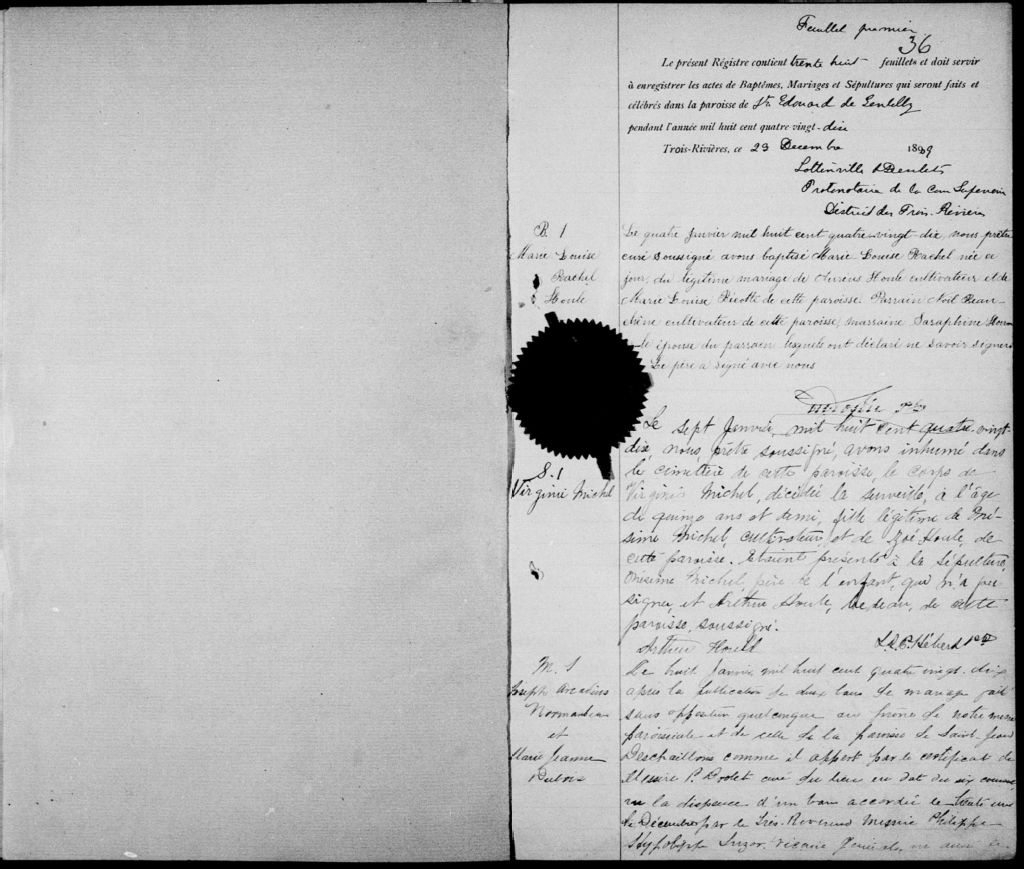 Feuillet premier
36
Le présent Régistre contient trente huit feuillets et doit servir
à enregistrer les actes de Baptêmes, Mariages et Sépultures qui seront faits et
célébrés dans la paroisse de St Edouard de Gentilly
pendant l'année mil huit cent quatre vingt-dix
Trois-Rivières, ce 23 Decembre 1889
Lottinville &
Protonotaire de la Cour Superieure
District des Trois-Rivieres
B. 1
Marie Louise
Rachel
Houle
Le quatre Janvier mil huit cent quatre-vingt-dix, nous prêtre
curé soussigné avons baptisé Marie Louise Rachel née ce
jour du légitime mariage de Houle cultivateur et de
Marie Louise Picotte de cette paroisse. Parrain Noël Beau-
chêne cultivateur de cette paroisse, marraine Saraphine
épouse du parrain lesquels ont déclaré ne savoir signer
Le père a signé avec nous
Ptre
S. 1
Virginie Michel
Le sept Janvier, mil huit cent quatre-vingt-
dix, nous, prêtre soussigné, avons inhumé dans
le cimetière de cette paroisse, le corps de
Virginie Michel, décédée la surveille, à l'âge
de quinze ans et demi, fille légitime de Oné-
sime Michel, cultivateur, et de Zoé Houle, de
cette paroisse. Etaient présents à la sépulture,
Onesime Michel, père de l'enfant, qui n'a pu
signer, et Arthur Houle, bedeau, de cette
paroisse, soussigné.
Arthur Houle
Hébert Ptre
M. 1
Joseph Arcadius
Normandin
et
Marie Jeanne
Dubois
Le huit Janvier mil huit cent quatre vingt-dix
après la publication de deux bans de mariage fait
sans opposition quelconque au prône de notre messe
paroissiale et de celle de la paroisse de Saint Jean
Deschaillons comme il appert par le certificat de
Messire P. Drolet curé du lieu en date du six courant,
vu la dispense d'un ban accordée le trente un
de Décembre par le Très-Reverend Messire Philippe
Hyppolyte Suzor, vicaire Général, vu aussi la